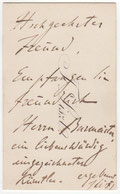 Hochgeehrter
Freund,
Empfangen Sie
freundlichst
Herrn Burmeister
ein liebenswürdig
ausgezeichneter
Künstler. ergebenst